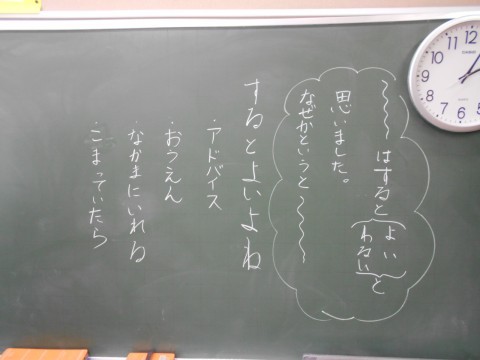 ～～～はすると{よい わるい}と
思いました。
なぜかというと～～～
するとよいよね
・アドバイス
・おうえん
・なかまにいれる
・こまっていたら
12
1
2
3
4
5
6
7
8
9
10
11